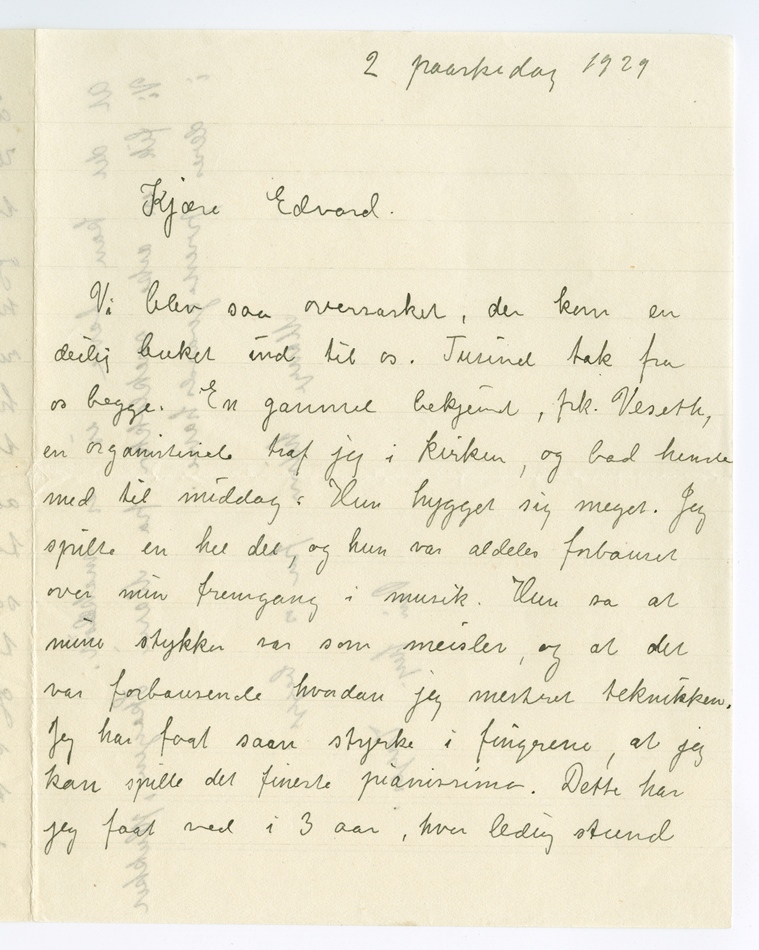 2 paaskedag 1929
Kjære Edvard.
Vi blev saa overrasket, der kom en
deilig buket ind til os. Tusind tak fra
os begge. En gammel bekjent, frk. Veseth,
en organistinde traf jeg i kirken, og bad hende
med til middag. Hun hygget sig meget. Jeg
spilte en hel del, og hun var aldeles forbauset
over min fremgang i musik. Hun sa at
mine stykker var som meisler, og at det
var forbausende hvordan jeg mestret teknikken.
Jeg har faat saan styrke i fingrene, at jeg
kan spille det fineste pianissimo. Dette har
jeg faat ved i 3 aar, hver ledig stund